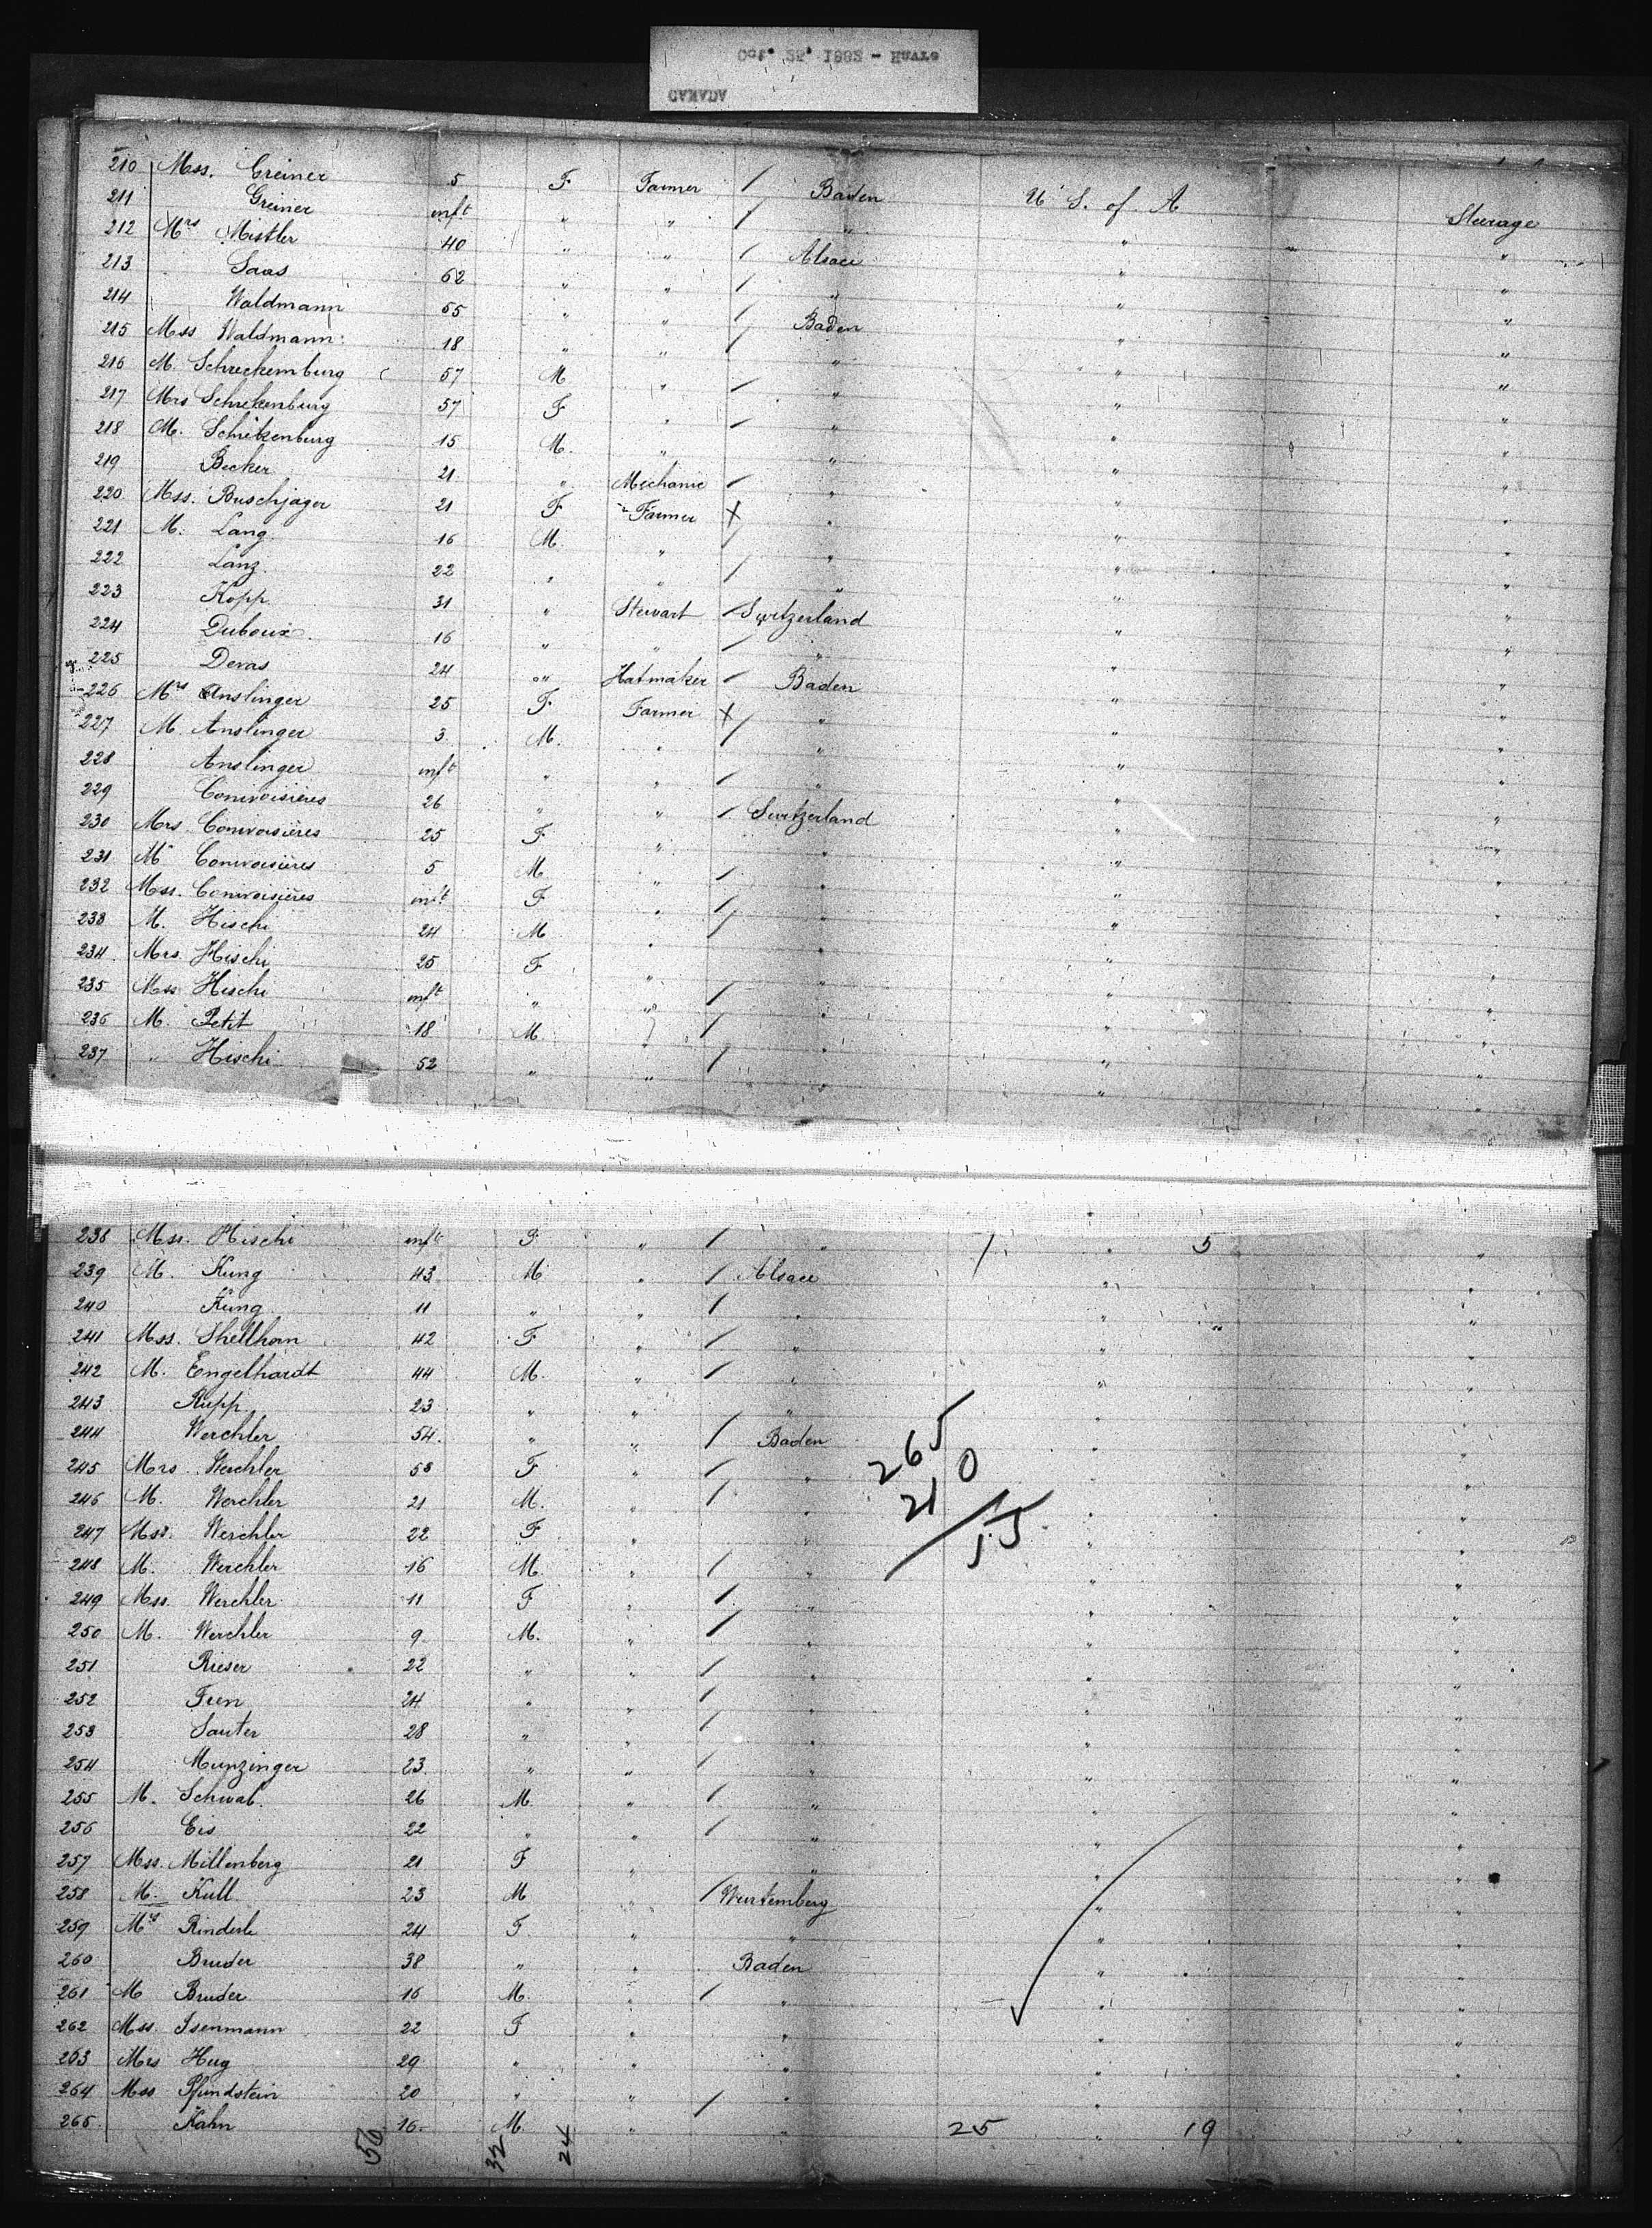 Oct. 25, 1882 - Havre
CANADA
210 Mss. Greiner 5 F Farmer / Baden U S. of A Steerage
211 Greiner inft " " / " " "
212 Mrs Mistler 40 " " / Alsace " "
213 Saas 62 " " / " " "
214 Waldmann 55 " " / Baden " "
215 Mss Waldmann 18 " " / " " "
216 M. Schreckemburg 57 M " / " " "
217 Mrs Schrekenburg 57 F " / " " "
218 M. Schrikenburg 15 M. " " " "
219 Becker 21 " Mechanic / " " "
220 Mss. Buschjager 21 F Farmer X " " "
221 M. Lang 16 M. " / " " "
222 Lanz 22 " " / " " "
223 Kopp 31 " Stewart / Switzerland " "
224 Duboux 16 " " / " " "
225 Devas 24 " Hatmaker / Baden " "
226 Mrs Anslinger 25 F Farmer X " " "
227 M. Anslinger 3 M. " / " " "
228 Anslinger inft " " / " " "
229 26 " " / Switzerland " "
230 Mrs. 25 F " " " "
231 M 5 M " / " " "
232 Mss. inft F " / " " "
233 M. Hischi 24 M " / " " "
234 Mrs. Hischi 25 F " " " "
235 Mss Hischi inft " " / " " "
236 M. Petit 18 M " / " " "
237 " Hischi 52 " " / " " "
238 Mss. Hischi inft F " / " / " 5 "
239 M. Kung 43 M " / Alsace " "
240 Kung 11 " " / " " "
241 Mss. Shellhorn 42 F " / " " "
242 M. Engelhardt 44 M. " / " " "
243 Rupp 23 " " " " "
244 Werchler 54 " " / Baden " "
245 Mrs. Werchler 53 F " / " " "
246 M. Werchler 21 M. " / " " "
247 Mss. Werchler 22 F " " " "
248 M. Werchler 16 M " / " " "
249 Mss. Werchler 11 F " / " " "
250 M. Werchler 9 M. " / " " "
251 Rieser 22 " " / " " "
252 24 " " / " " "
253 Sauter 28 " " / " " "
254 Munzinger 23 " " / " " "
255 M. Schwab 26 M. " / " " "
256 Eis 22 " " / " " "
257 Mss. Millenberg 21 F " " " "
258 M. Kull 23 M " / Wurtemberg " "
259 Mrs Rinderle 24 F " " " "
260 Bruder 38 " " Baden " "
261 M Bruder 16 M. " / " " "
262 Mss. Isenmann 22 F " " " "
263 Mrs Hug 29 " " " " "
264 Mss Pfundstein 20 " " / " " "
265 Kahn 16 M. " " 25 " 19 "
56 32 24
265
210
55